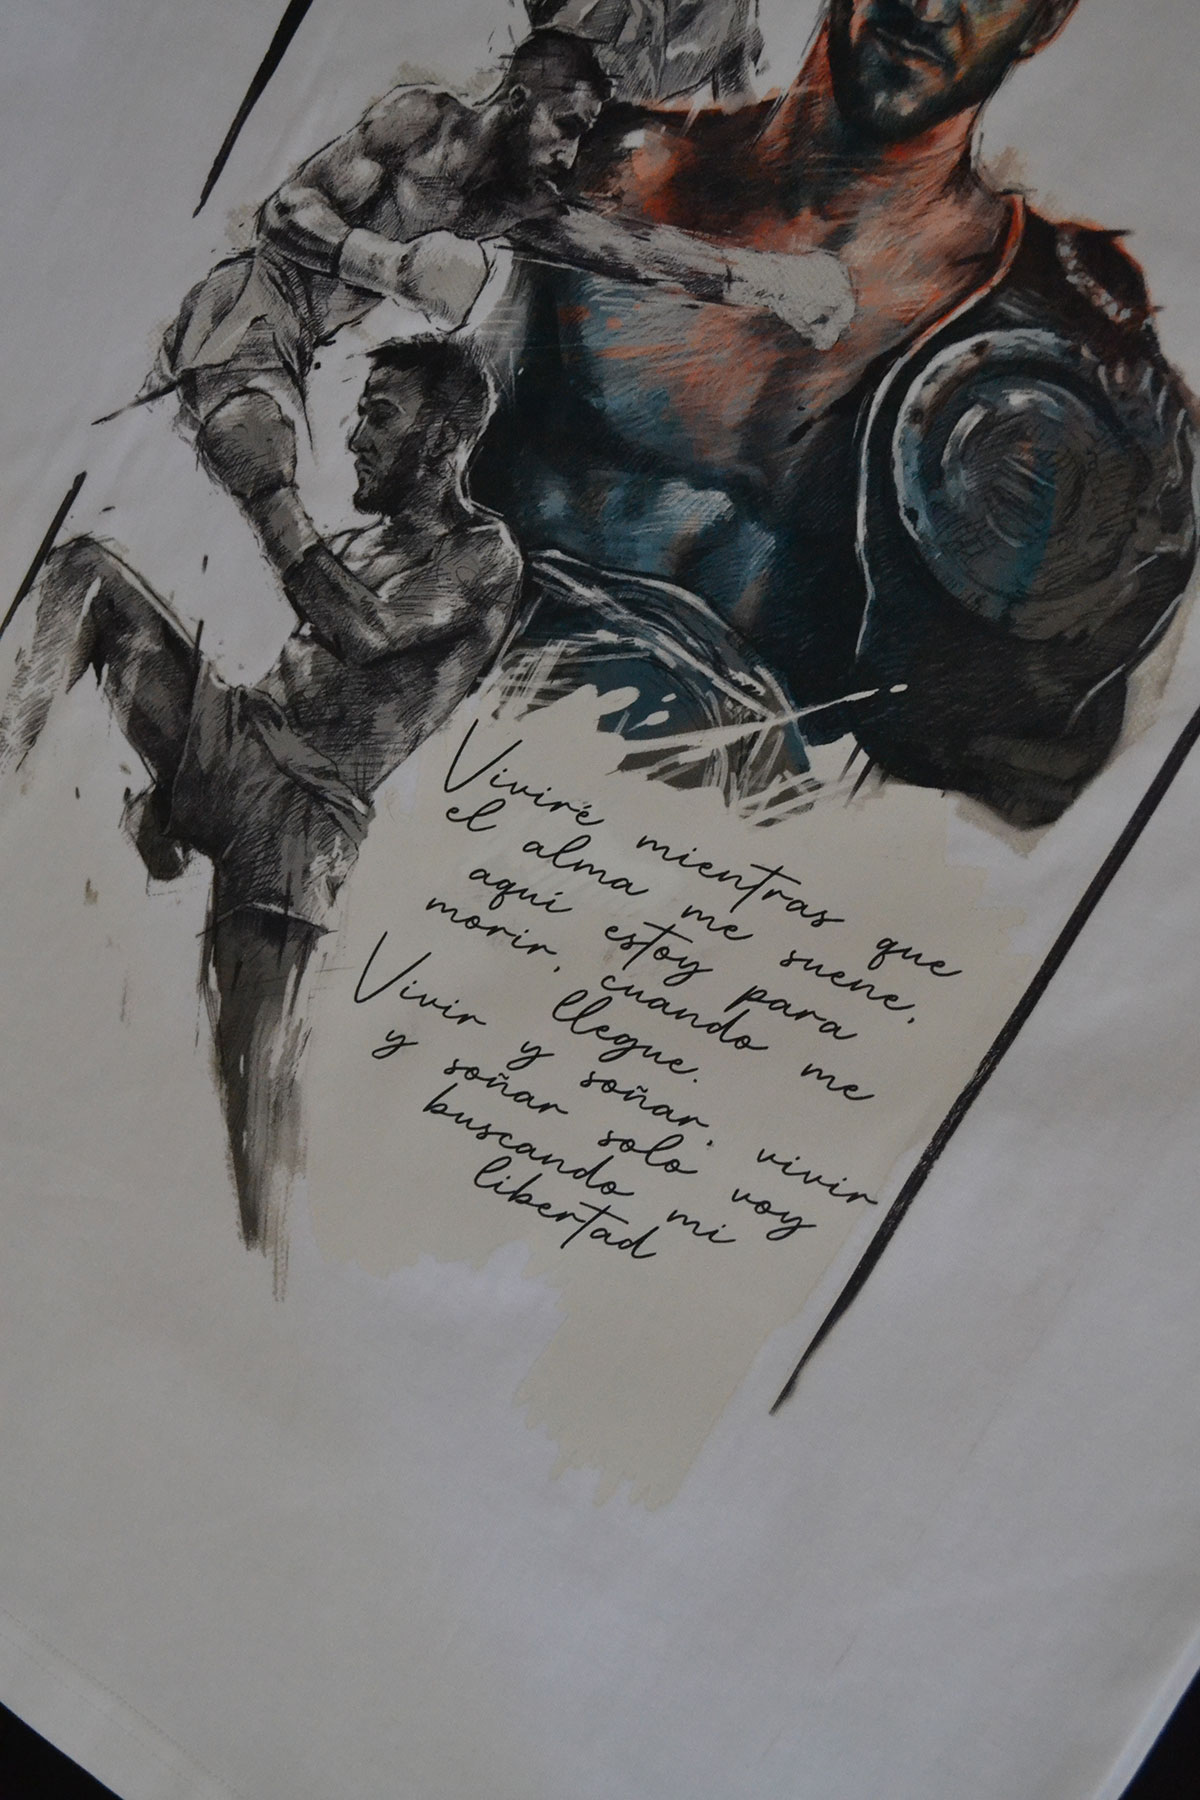 Viviré mientras que
el alma me suene,
aquí estoy para
morir, cuando me
llegue.
Vivir y soñar, vivir
y soñar solo voy
buscando mi
libertad